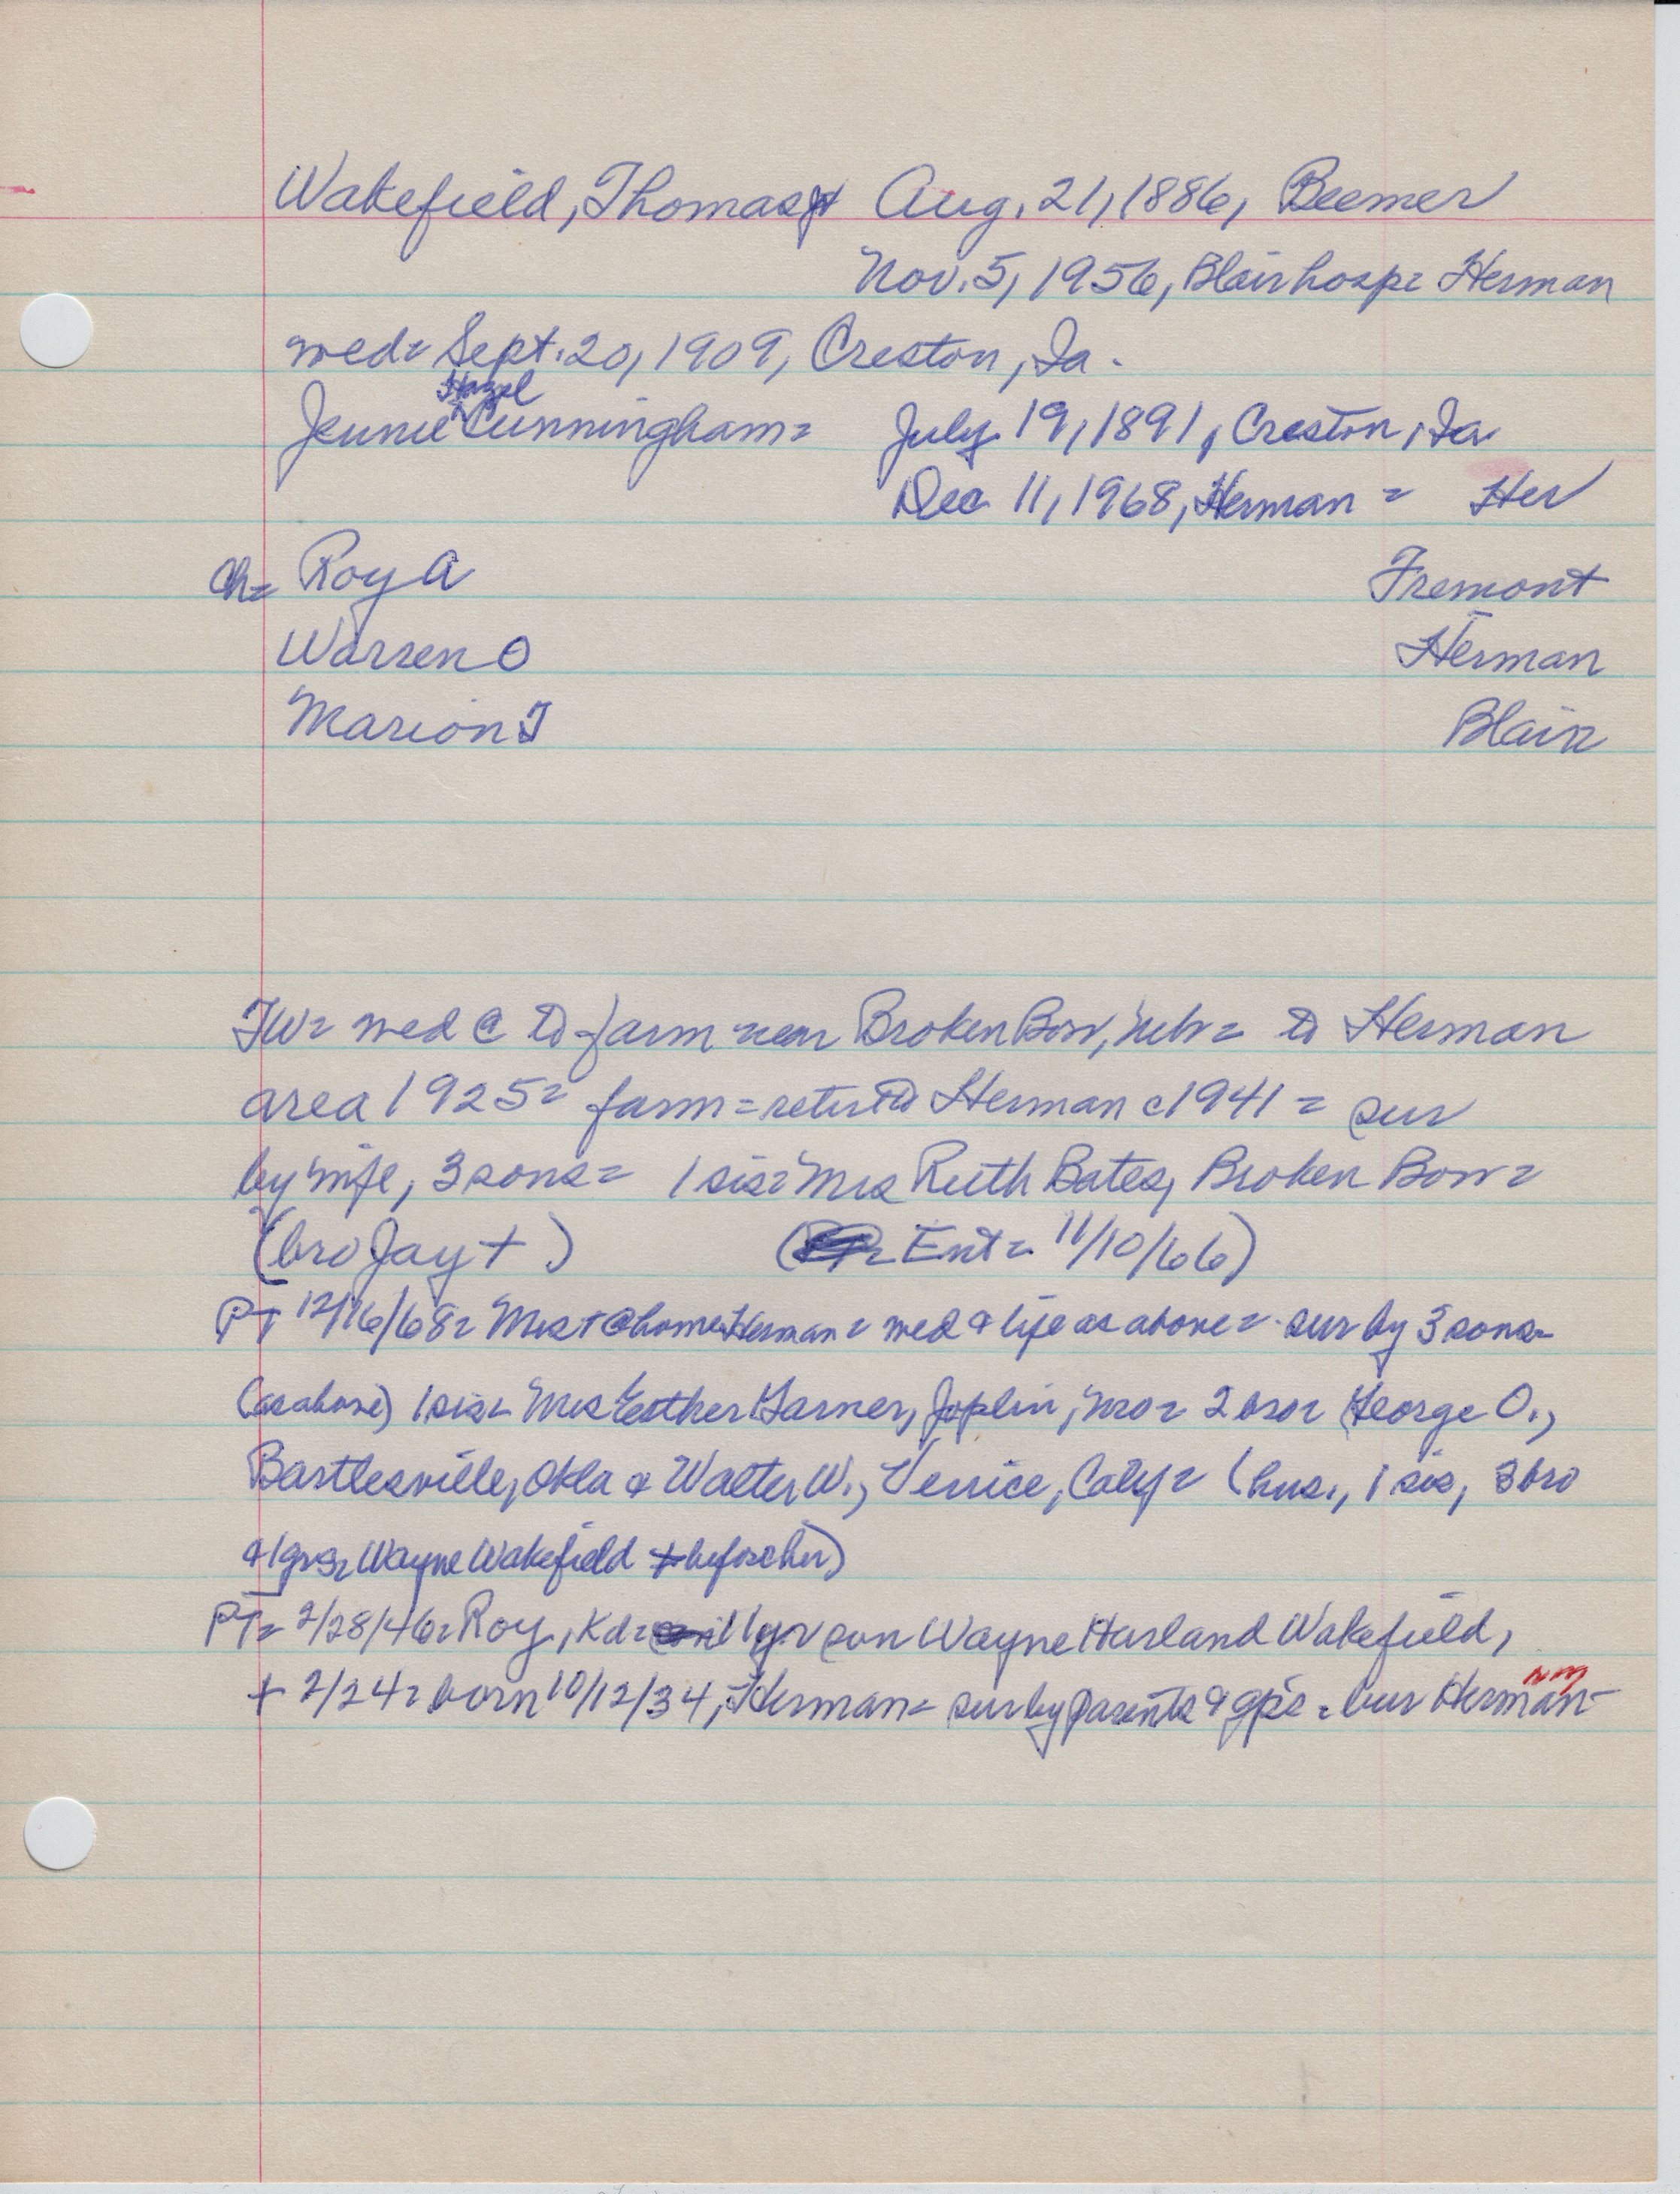 Wakefield, Thomas Aug. 21, 1886, Beemer
Nov. 5, 1956, Blair hosp= Herman
wed= Sept. 20, 1909, Creston, Ia.
Hazel
Jennie Cunningham= July 19, 1891, Creston, Ia
Dec 11, 1968, Herman = Her
Ch= Roy A Fremont
Warren O Herman
Marion T Blair
TW= wed & to farm near Broken Bow, Neb= to Herman
area 1925= farm= retir to Herman c1941 = sur
by wife, 3 sons= 1 sis= Mrs Ruth Bates, Broken Bow=
(bro Jay +) (Ent= 11/10/66)
PT 12/16/68= Mrs + @ home Herman= wed & life as above= sur by 3 sons=
(as above) 1 sis= Mrs Esther Garner, Joplin, Mo= 2 bro= George O.,
Bartlesville, Okla & Walter W., Venice, Calif= (hus., 1 sis, 3 bro
& 1 grs= Wayne Wakefield + before her)
PT= 2/28/46= Roy, Kd= 11 yr son Wayne Harland Wakefield,
+ 2/24= born 10/12/34, Herman= sur by parents & gps= bur Herman-